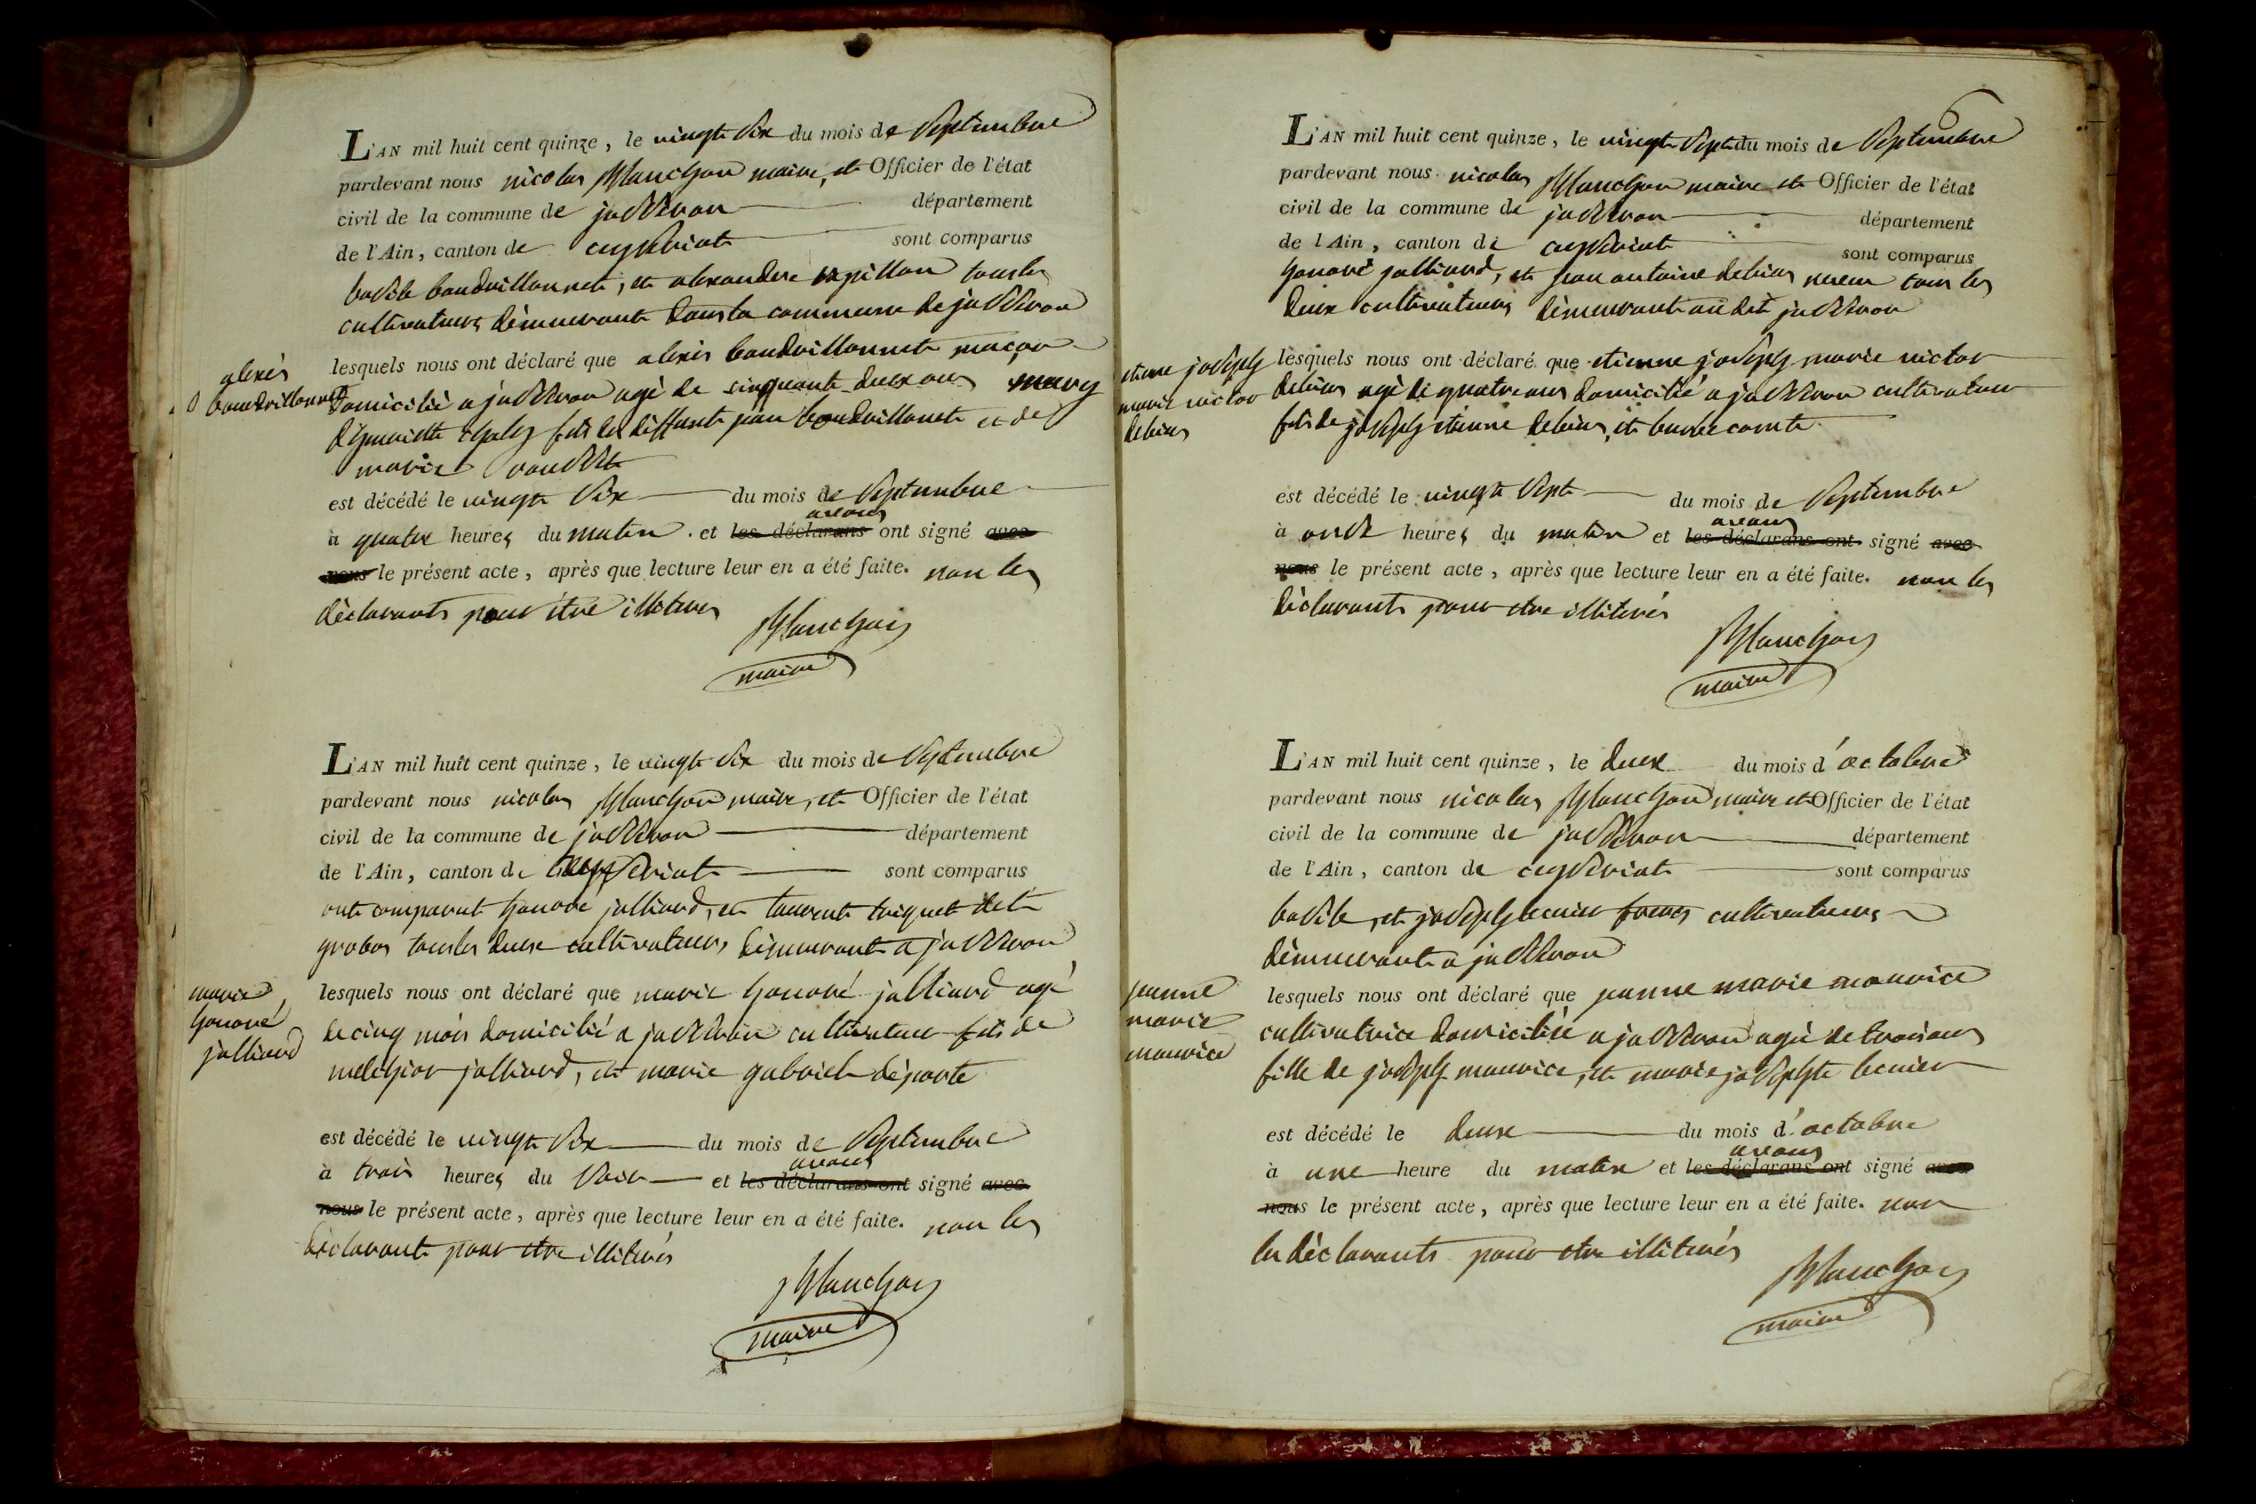 L'AN mil huit cent quinze, le vingt six du mois de septembre
pardevant nous nicolas Manchon maire, et Officier de l'état
civil de la commune de jasseron département
de l'Ain, canton de ceyseriat sont comparus
basile baudrillonnet, et alexandre tous les
cultivateurs démeurant dans la commune de jasseron
alexis
baudrillonnet
lesquels nous ont déclaré que alexis baudrillonnet maçon
domicilié a jasseron agé de cinquante deux ans
fils de diffunt jean baudrillonet et de
marie
est décédé le vingt six du mois de septembre
avons
à quatre heures du matin. et les déclarans ont signé avec
nous le présent acte, après que lecture leur en a été faite. non les
déclarants pour être illiteres
Manchon
maire
L'AN mil huit cent quinze, le vingt six du mois de septembre
pardevant nous nicolas Manchon maire, et Officier de l'état
civil de la commune de jasseron département
de l'Ain, canton de ceyseriat sont comparus
ont comparut honoré jolliard, et laurent triquet dit
grobos tous les deux cultivateurs démeurant a jasseron
marie
honoré
jolliard
lesquels nous ont déclaré que marie honoré jolliard agé
de cinq mois domicilié a jasseron cultivateur fils de
melchior jolliard, et marie gabriel déporte
est décédé le vingt six du mois de septembre
avons
à trois heures du soir et les déclarans ont signé avec
nous le présent acte, après que lecture leur en a été faite. non les
déclarants pour etre illiterés
Manchon
maire
6
L'AN mil huit cent quinze, le vingt sept du mois de septembre
pardevant nous nicolas Manchon maire et Officier de l'état
civil de la commune de jasseron département
de l'Ain, canton de ceyseriat sont comparus
honoré jolliard, et jean antoine debias neveu tous les
deux cultivateurs démeurant au dit jasseron
etienne joseph
marie victor
debias
lesquels nous ont déclaré que etienne joseph marie victor
debias agé de quatre ans domicilié a jasseron cultivateur
fils de joseph etienne debias, et comte
est décédé le vingt sept du mois de septembre
avons
à onze heures du matin et les déclarans ont signé avec
nous le présent acte, après que lecture leur en a été faite. non les
déclarants pour etre illiterés
Manchon
maire
L'AN mil huit cent quinze, le deux du mois d'octobre
pardevant nous nicolas Manchon maire et Officier de l'état
civil de la commune de jasseron département
de l'Ain, canton de ceyseriat sont comparus
basile, et joseph frères cultivateurs
démeurant a jasseron
jeanne
marie
maurice
lesquels nous ont déclaré que jeanne marie maurice
cultivatrice domiciliée a jasseron agée de trois ans
fille de joseph maurice, et marie josephte
est décédé le deux du mois d'octobre
avons
à une heure du matin et les déclarans ont signé avec
nous le présent acte, après que lecture leur en a été faite. non
les déclarants pour etre illiterés
Manchon
maire